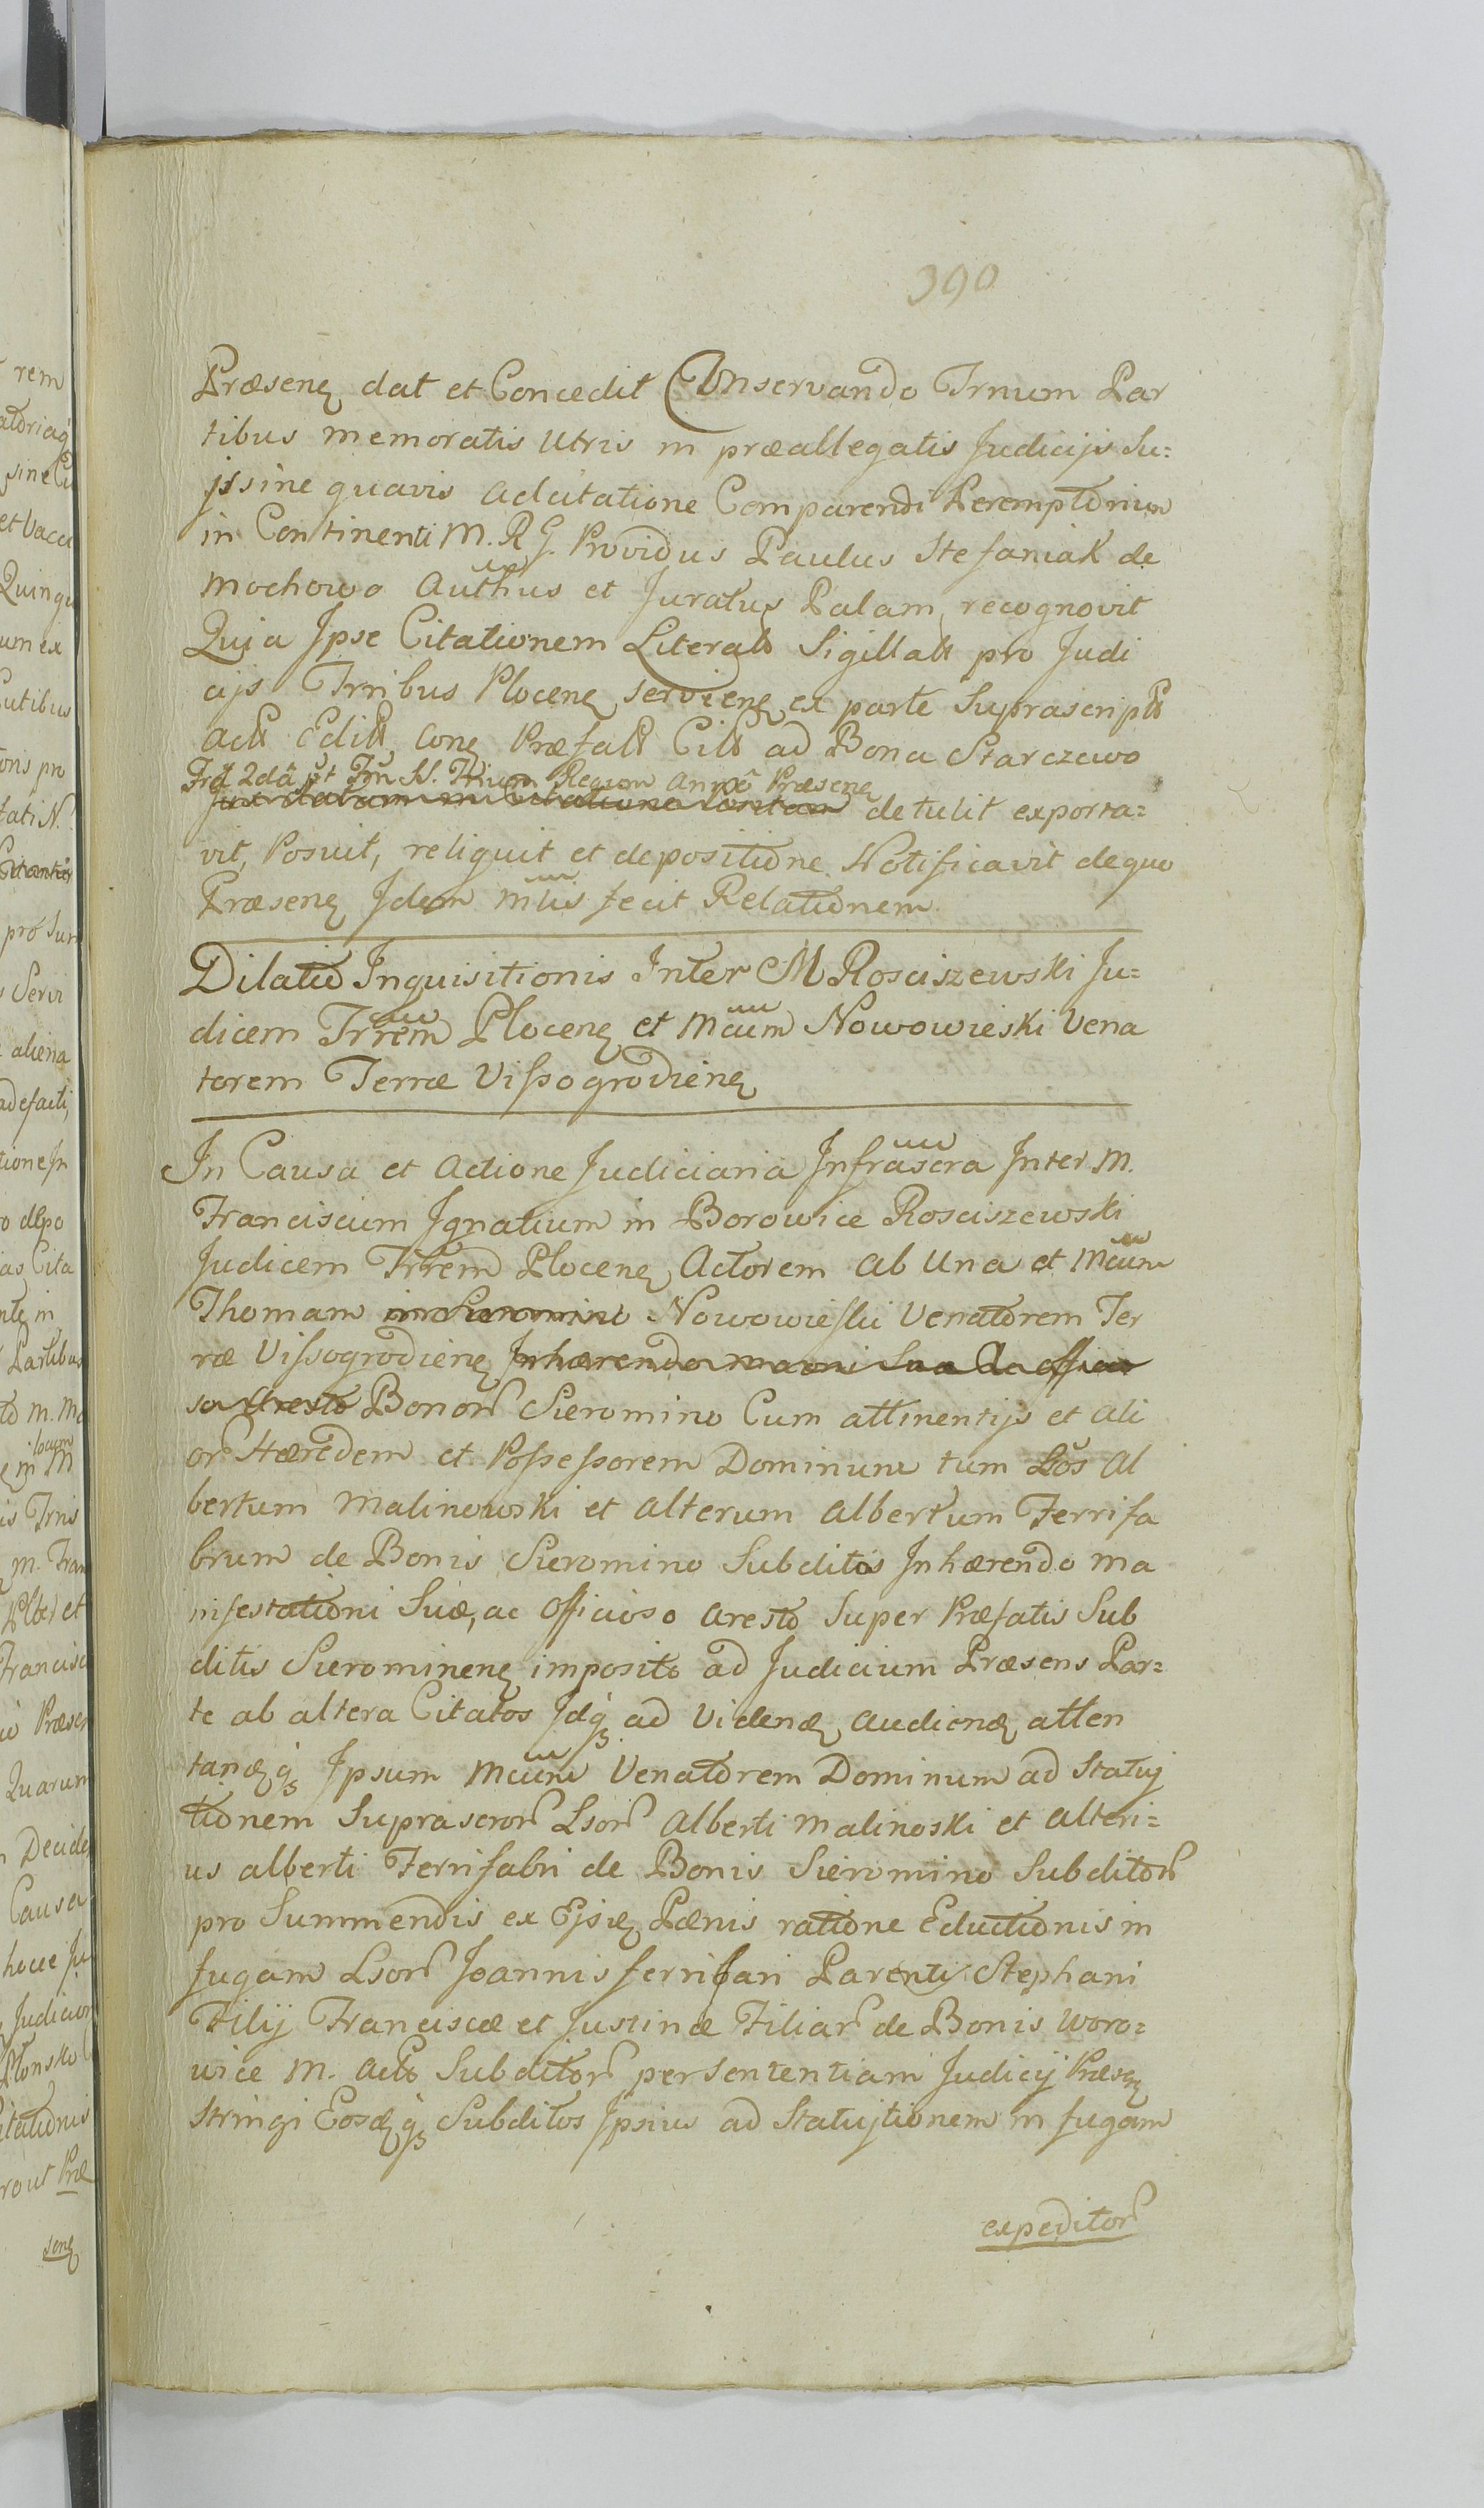 390
Præsenę dat et Concedit Conservando Trnum Par
tibus memoratis Utris in præallegatis Judicijs Su=
js sine quavis adcitatione Comparendi Peremptorium
in Continenti M. R G. Providus Paulus Stefaniak de
Mochowo Authus et Juratus Palam recognovit
Quia Ipse Citationem Literalr Sigillatt pro Judi
cijs Trribus Plocenę servienę ex parte Suprascriptt
Actt Editt, conę Præfatt Citt ad Bona Starczewo
Fr. 2dâ pt Frm SS. Trium Regum Annô Præsenę
Juxta datam in Citatione Positam detulit exporta=
vit, Posuit, reliquit et depositione Notificavit de quo
Præsenę Idem Mtlis fecit Relationem.
Dilatio Inquisitionis Inter M Rosciszewski Ju=
dicem Trrem Plocenę et Mcum Nowowieski Vena
torem Terræ Vissogrodienę
In Causa et Actione Judiciaria Infrascra Inter M.
Franciscum Ignatium in Borowice Rosciszewski
Judicem Trrem Plocenę Actorem ab Una et Mcum
Thomam in Sieromino Nowowieski Venatorem Ter
ræ Vissogrodienę Inhærendo Mani Suæ Ac officio
so Aresto Bonor Sieromino Cum attinentijs et ali
or Hæredem et Possessorem Dominum tum Lbos Al
bertum Malinowski et alterum Albertum Ferrifa
brum de Bonis Sieromino Subditos Inhærendo ma
nifestationi Suæ, ac Officioso aresto Super Præfatis Sub
ditis Sierominenę imposito ad Judicium Præsens Par=
te ab altera Citatos Idq ad Videndę Audiendę atten
tandę q Ipsum Mcum Venatorem Dominum ad Statuj
tionem Suprascror Lsor Alberti Malinoski et Alteri=
us alberti Ferrifabri de Bonis Sieromino Subditor
pro Summendis ex Ejsdę Pænis ratione Eductionis in
fugam Lsor Joannis ferrifari Parentis Stephani
Filij Franciscæ et Justinæ Filiar de Bonis Woro=
wice M. Actr Subditor per Sententiam Judicij Præsę
stringi Eosdę q Subditos Ipsius ad Statujtionem in fugam
expeditor